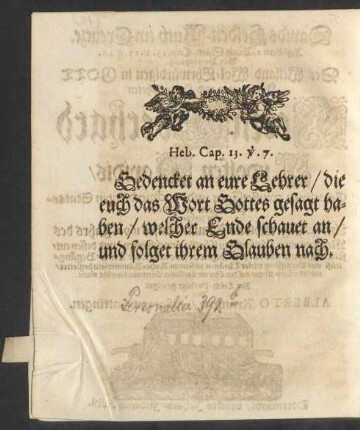 Heb. Cap. 13. ℣. 7.
Gedencket an eure Lehrer / die
euch das Wort Gottes gesagt ha-
ben / welcher Ende schauet an /
und folget ihrem Glauben nach.
Personalia 392